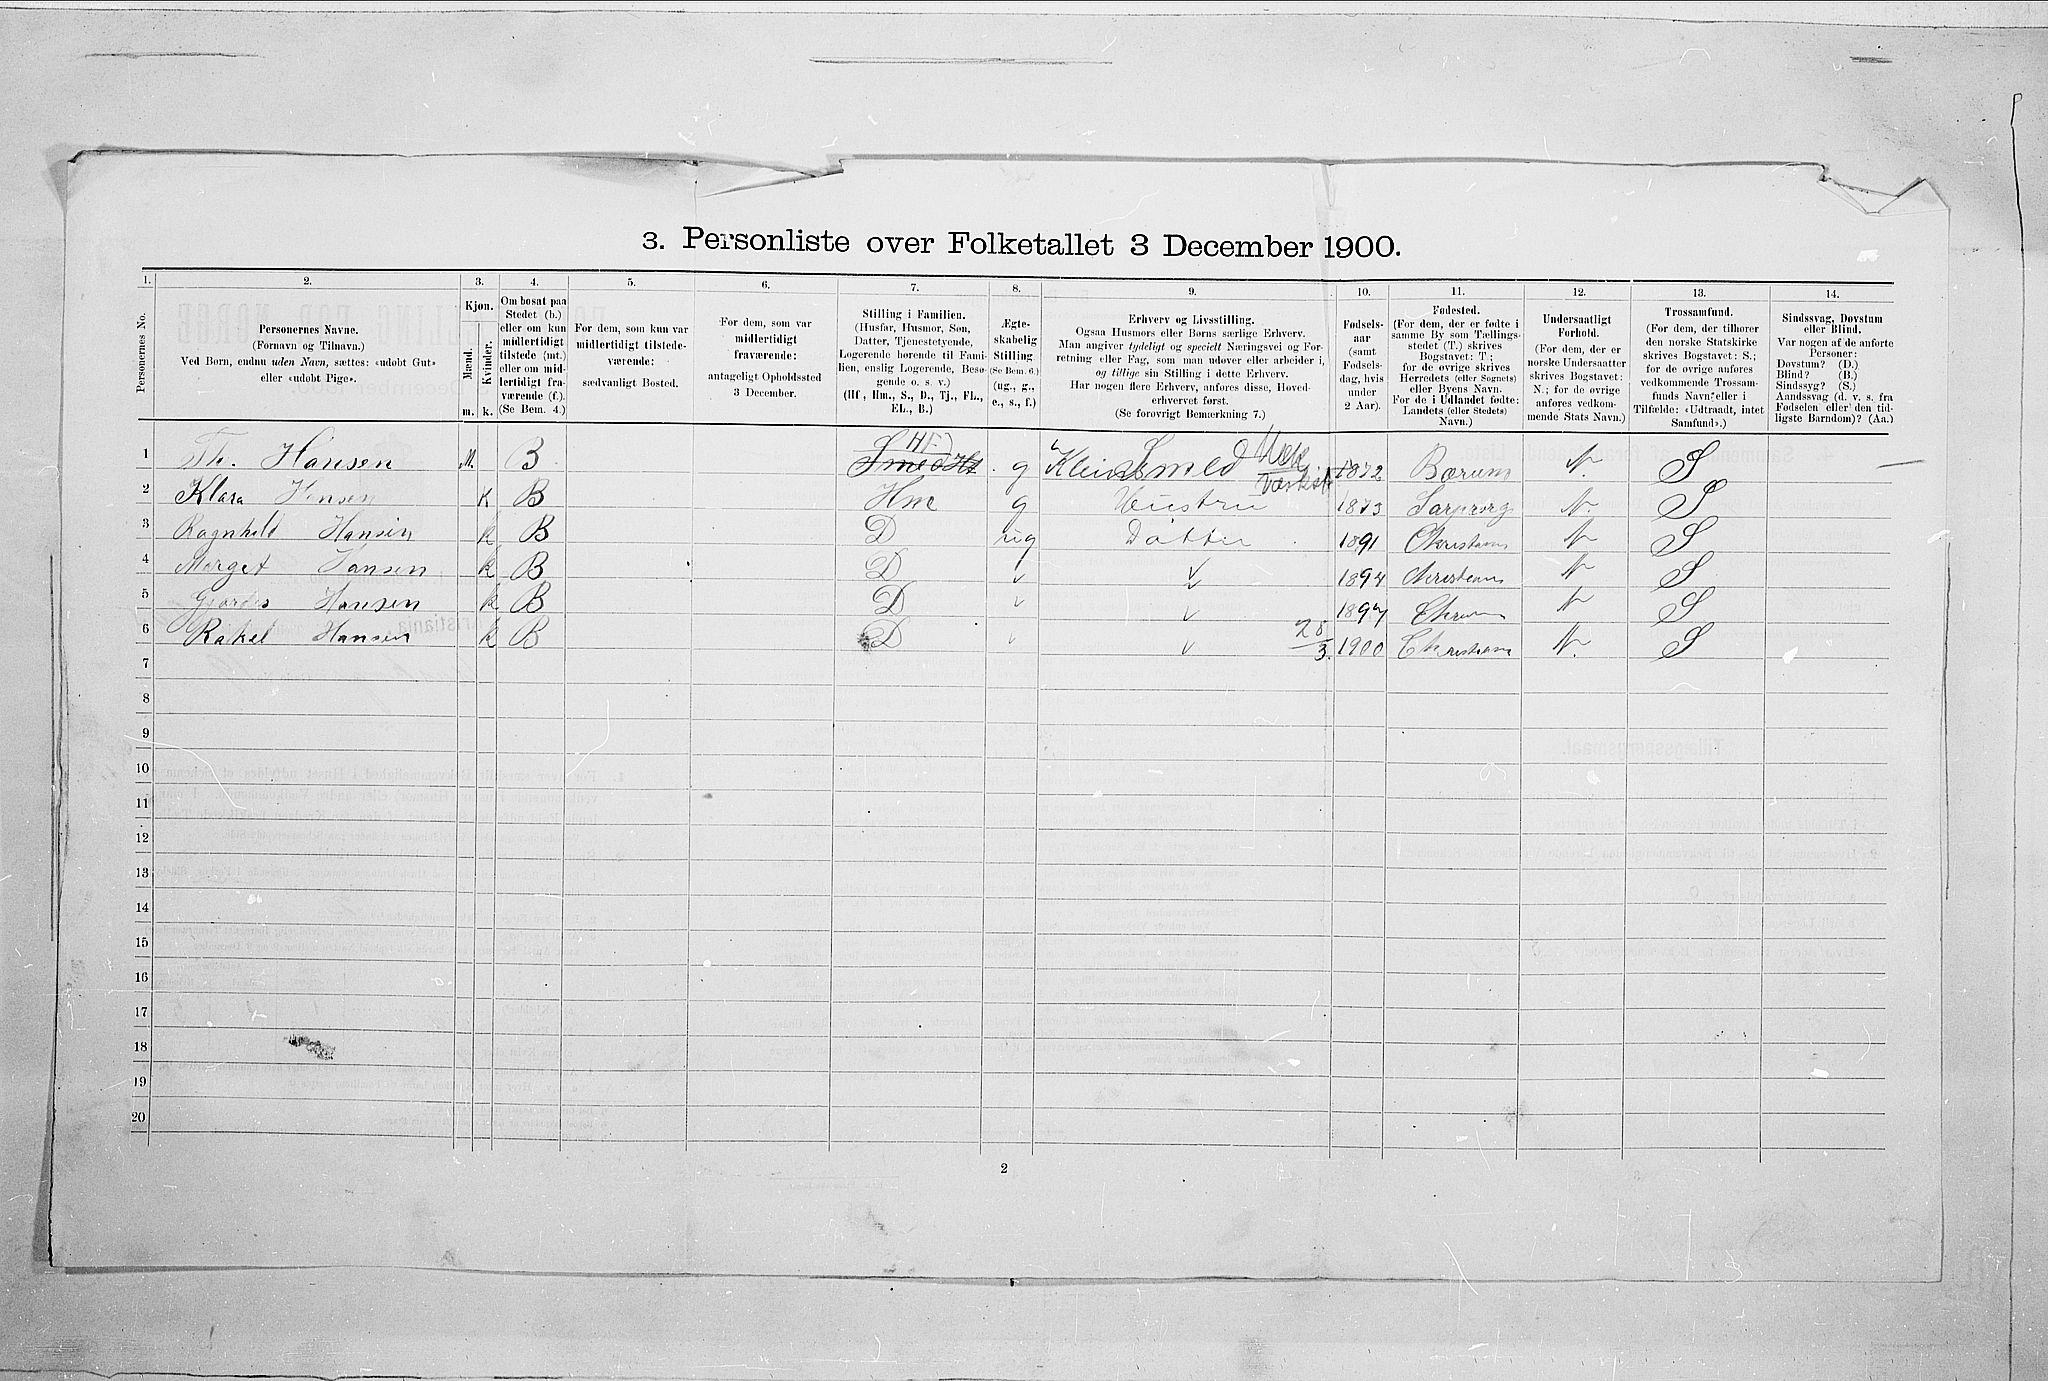 3. Personliste over Folketallet 3 December 1900.
1. 2. 3. 4. 5. 6. 7. 8. 9. 10. 11. 12. 13. 14.
Personernes No.
Personernes Navne.
(Fornavn og Tilnavn.)
Ved Børn, endnu uden Navn, sættes: «udøbt Gut»
eller «udøbt Pige».
Kjøn.
Mænd.
Kvinder.
m. k.
Om bosat paa
Stedet (b.)
eller om kun
midlertidigt
tilstede (mt.)
eller om mid-
lertidigt fra-
værende (f.).
(Se Bem. 4.)
For dem, som kun var
midlertidigt tilstede-
værende:
sædvanligt Bosted.
For dem, som var
midlertidigt
fraværende:
antageligt Opholdssted
3 December.
Stilling i Familien.
(Husfar, Husmor, Søn,
Datter, Tjenestetyende,
Logerende hørende til Fami-
lien, enslig Logerende, Besø-
gende o. s. v.)
(Hf., Hm., S., D., Tj., FL.,
EL., B.)
Ægte-
skabelig
Stilling
(Se Bem. 6.)
(ug., g.,
e., s., f.)
Erhverv og Livsstilling.
Ogsaa Husmors eller Børns særlige Erhverv.
Man angiver tydeligt og specielt Næringsvei og For-
retning eller Fag, som man udøver eller arbeider i,
og tillige sin Stilling i dette Erhverv.
Har nogen flere Erhverv, anføres disse, Hoved-
erhvervet først.
(Se forøvrigt Bemærkning 7.)
Fødsels-
aar
(samt
Fødsels-
dag, hvis
under
2 Aar).
Fødested.
(For dem, der er fødte i
samme By som Tællings-
stedet (T.) skrives
Bogstavet: T;
for de øvrige skrives
Herredets (eller Sognets)
eller Byens Navn.
For de i Udlandet fødte:
Landets (eller Stedets)
Navn.)
Undersaatligt
Forhold.
(For dem, der er
norske Undersaatter
skrives Bogstavet:
N.; for de øvrige
anføres vedkom-
mende Stats Navn.)
Trossamfund.
(For dem, der tilhører
den norske Statskirke
skrives Bogstavet: S.;
for de øvrige anføres
vedkommende Trossam-
funds Navn eller i
Tilfælde: «Udtraadt, intet
Samfund».)
Sindssvag, Døvstum
eller Blind.
Var nogen af de anførte
Personer:
Døvstum? (D.)
Blind? (B.)
Sindssyg? (S.)
Aandssvag (d. v. s. fra
Fødselen eller den tid-
ligste Barndom)? (Aa.)
1 Th. Hansen M. B Smed Hf g Klein Smeld Mek Værkst 1872 Bærum N. S
2 Klara Hansen K B Hm g Hustru 1873 Sarpsrg N. S
3 Ragnhild Hansin k B D ug Datter 1891 Christiania N S
4 Marget Hansen k B D 1894 Christiania N S
5 Hansen k B D 1897 N S
6 Rakel Hansen k B D 28/3. 1900 Christiania N. S
7
8
9
10
11
12
13
14
15
16
17
18
19
20
2